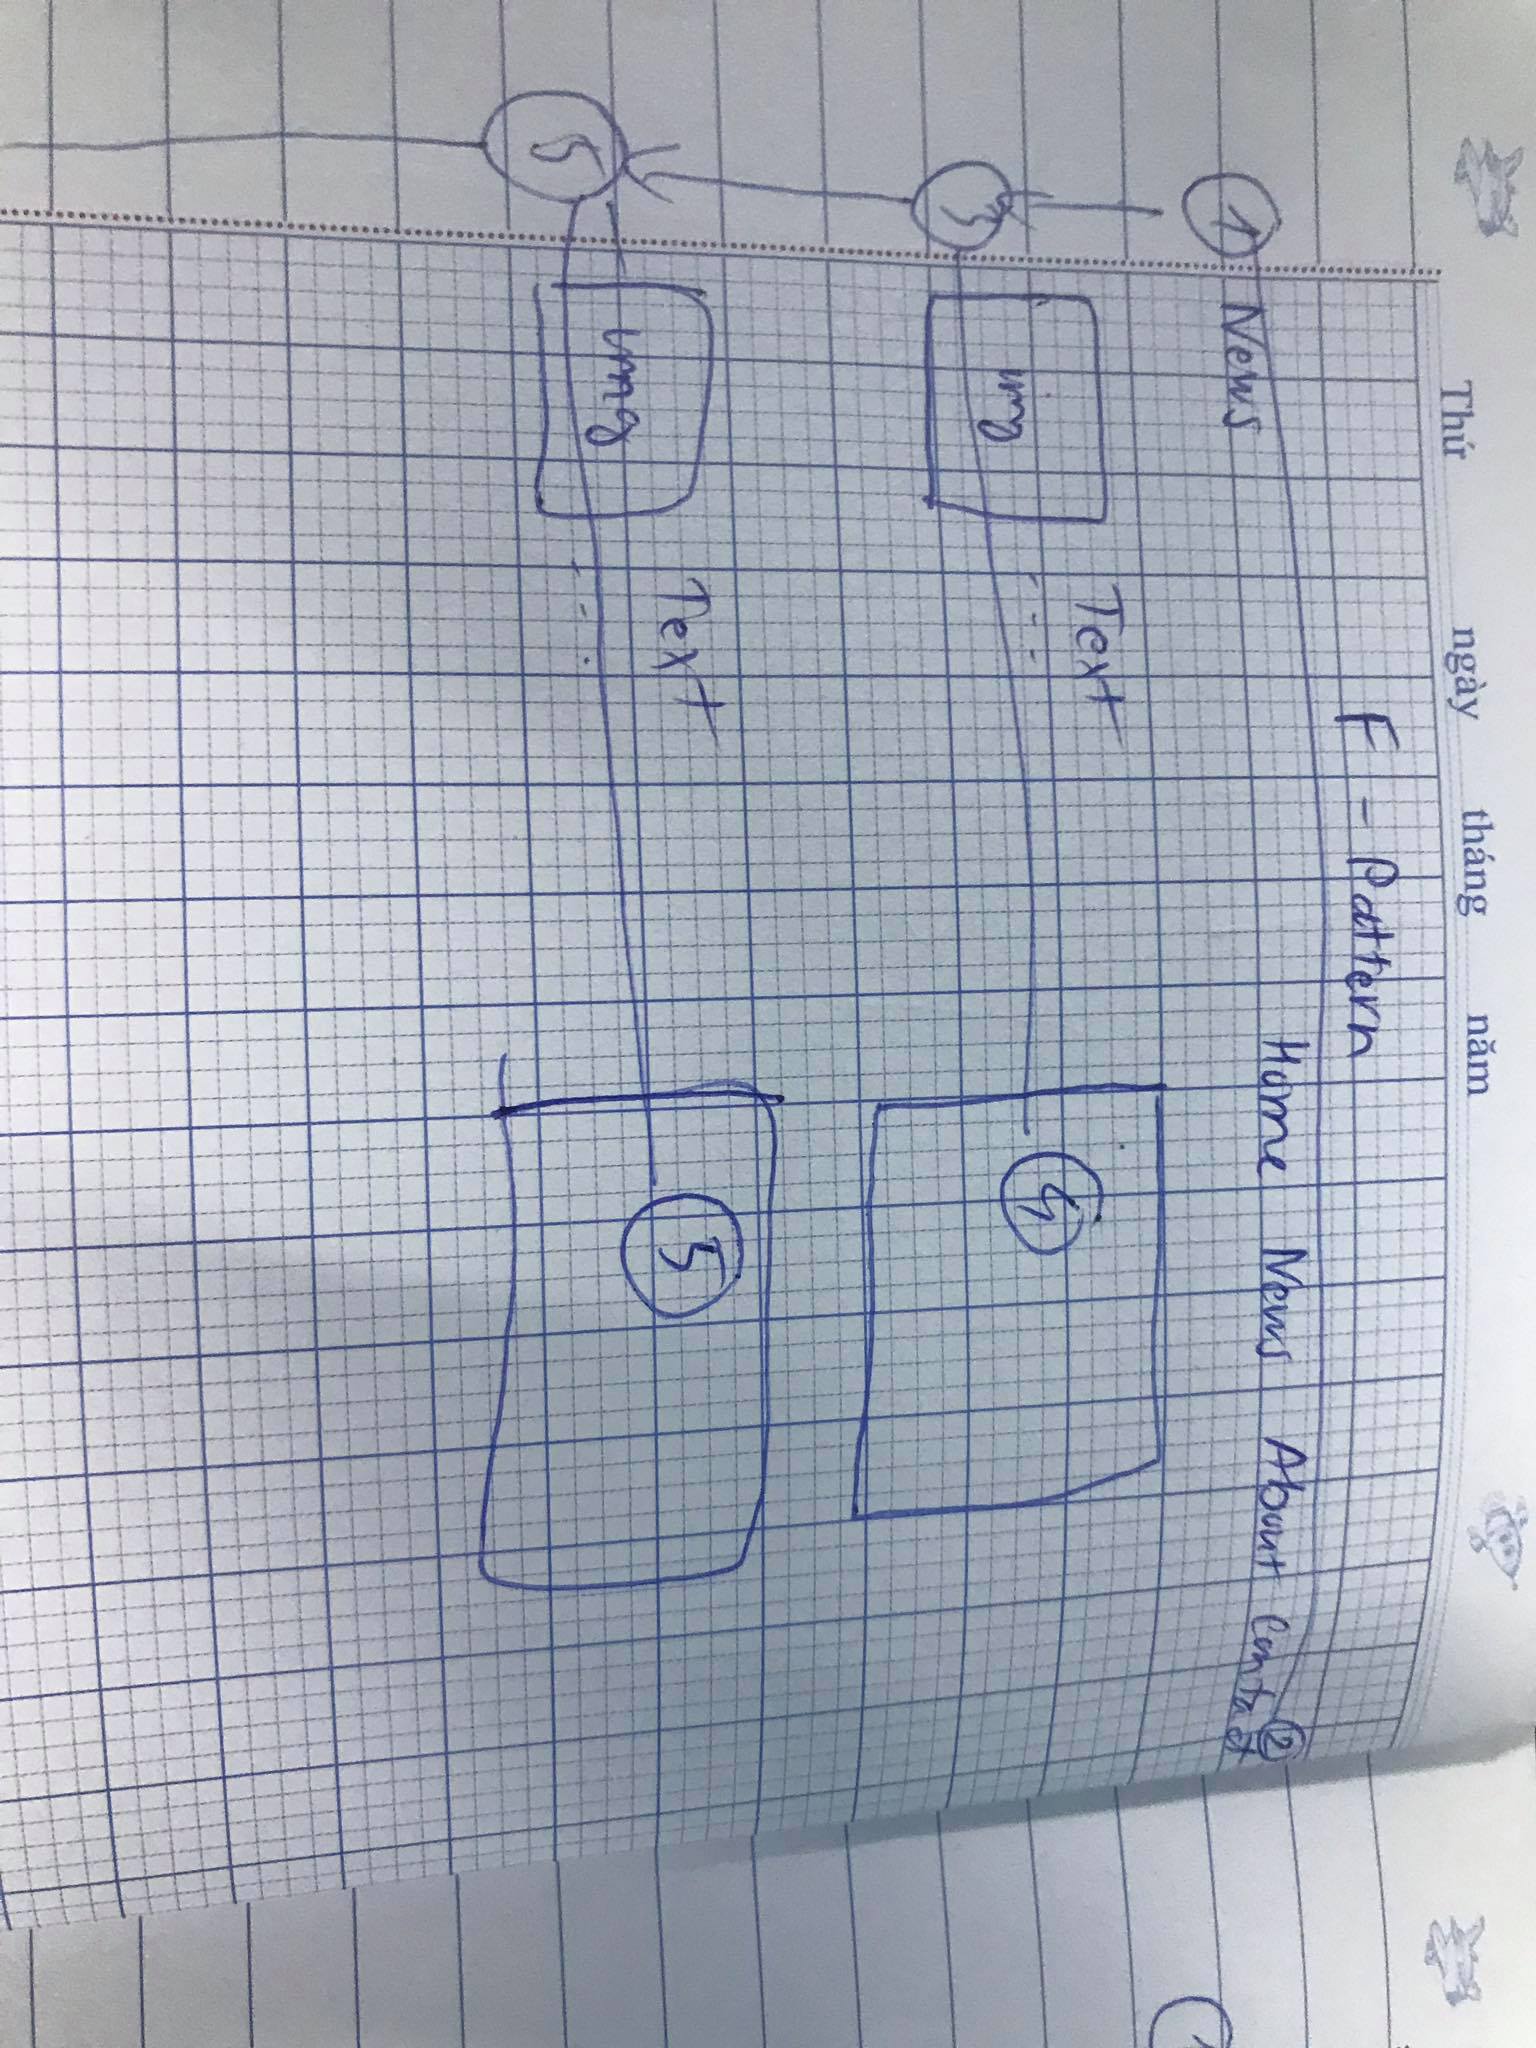 Thứ ngày tháng năm
F - Pattern
1 News Home News About Contact 2
3 img Text 4
5 img Text 5